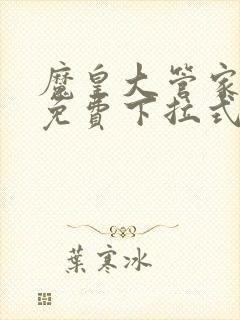 魔皇大管家
免費下拉式
葉寒冰